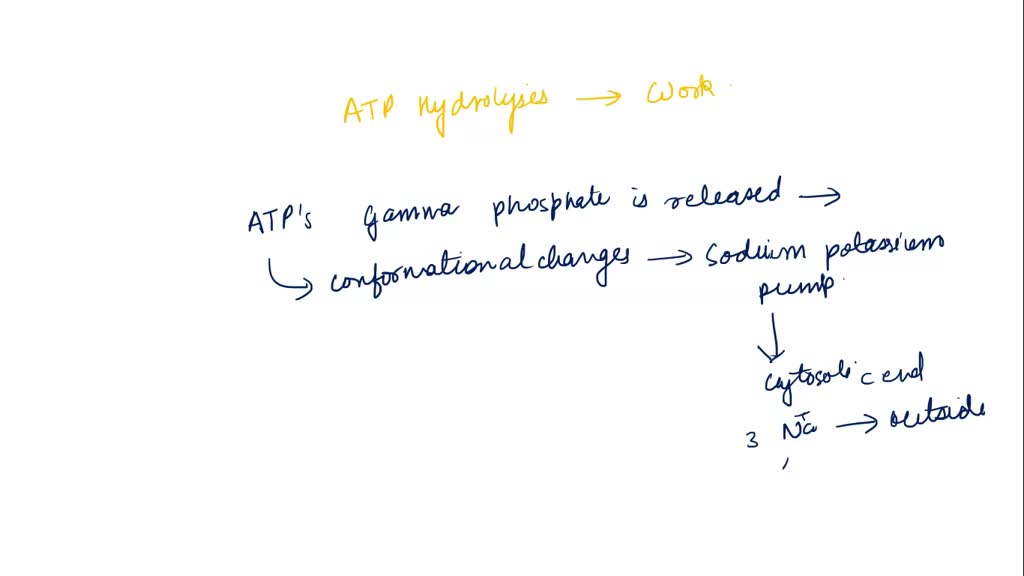 ATP Hydrolyses → Work
ATP's gamma phosphate is released →
↳ conformational changes → Sodium potassium
pump
↓
Cytosolic end
3 Na⁺ → outside